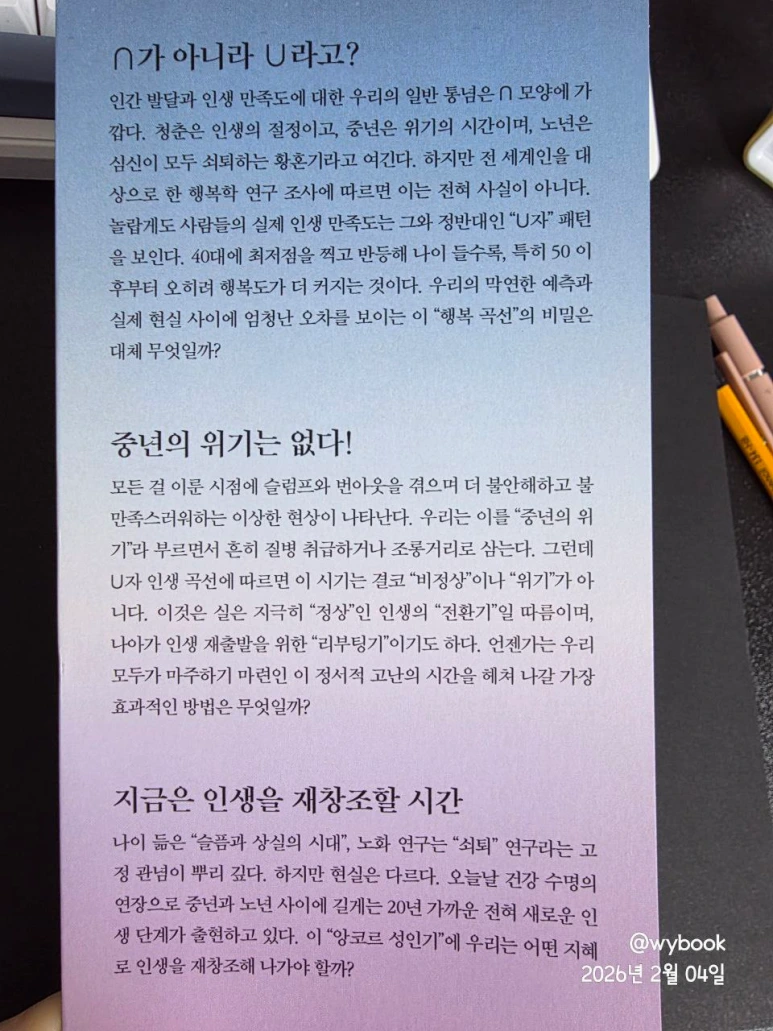 ∩가 아니라 ∪라고?
인간 발달과 인생 만족도에 대한 우리의 일반 통념은 ∩ 모양에 가
깝다. 청춘은 인생의 절정이고, 중년은 위기의 시간이며, 노년은
심신이 모두 쇠퇴하는 황혼기라고 여긴다. 하지만 전 세계인을 대
상으로 한 행복학 연구 조사에 따르면 이는 전혀 사실이 아니다.
놀랍게도 사람들의 실제 인생 만족도는 그와 정반대인 “∪자” 패턴
을 보인다. 40대에 최저점을 찍고 반등해 나이 들수록, 특히 50 이
후부터 오히려 행복도가 더 커지는 것이다. 우리의 막연한 예측과
실제 현실 사이에 엄청난 오차를 보이는 이 “행복 곡선”의 비밀은
대체 무엇일까?
중년의 위기는 없다!
모든 걸 이룬 시점에 슬럼프와 번아웃을 겪으며 더 불안해하고 불
만족스러워하는 이상한 현상이 나타난다. 우리는 이를 “중년의 위
기”라 부르면서 흔히 질병 취급하거나 조롱거리로 삼는다. 그런데
∪자 인생 곡선에 따르면 이 시기는 결코 “비정상”이나 “위기”가 아
니다. 이것은 실은 지극히 “정상”인 인생의 “전환기”일 따름이며,
나아가 인생 재출발을 위한 “리부팅기”이기도 하다. 언젠가는 우리
모두가 마주하기 마련인 이 정서적 고난의 시간을 헤쳐 나갈 가장
효과적인 방법은 무엇일까?
지금은 인생을 재창조할 시간
나이 듦은 “슬픔과 상실의 시대”, 노화 연구는 “쇠퇴” 연구라는 고
정 관념이 뿌리 깊다. 하지만 현실은 다르다. 오늘날 건강 수명의
연장으로 중년과 노년 사이에 길게는 20년 가까운 전혀 새로운 인
생 단계가 출현하고 있다. 이 “앙코르 성인기”에 우리는 어떤 지혜
로 인생을 재창조해 나가야 할까?
@wybook
2026년 2월 04일